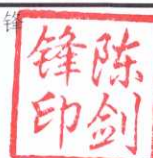 锋
陈剑
锋印